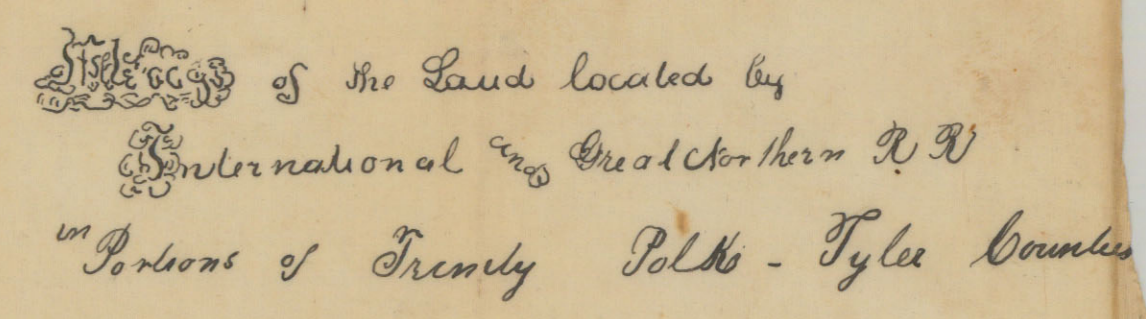 of the Land located by
International and Great Northern R R
in Portions of Trinity Polk - Tyler Counties